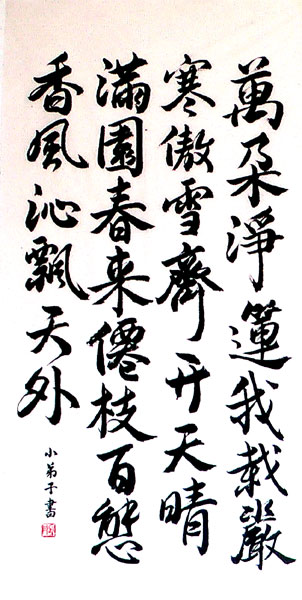 萬朵淨蓮我栽嚴
寒傲雪齊开天晴
滿園春来僊枝百態
香風沁飄天外
小弟子書